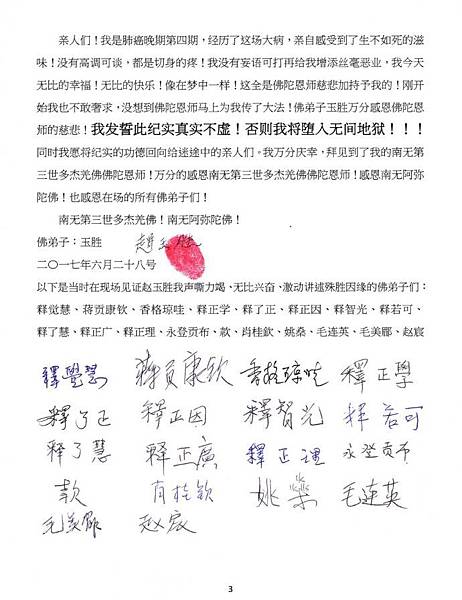 亲人们！我是肺癌晚期第四期，经历了这场大病，亲自感受到了生不如死的滋
味！没有高调可谈，都是切身的疼！我没有妄语可打再给我增添丝毫恶业，我今天
无比的幸福！无比的快乐！像在梦中一样！这全是佛陀恩师慈悲加持予我的！刚开
始我也不敢奢求，没想到佛陀恩师马上为我传了大法！佛弟子玉胜万分感恩佛陀恩
师的慈悲！我发誓此纪实真实不虚！否则我将堕入无间地狱！！！
同时我愿将纪实的功德回向给迷途中的亲人们。我万分庆幸，拜见到了我的南无第
三世多杰羌佛佛陀恩师！万分的感恩南无第三世多杰羌佛佛陀恩师！感恩南无阿弥
陀佛！也感恩在场的所有佛弟子们！
南无第三世多杰羌佛！南无阿弥陀佛！
佛弟子：玉胜 趙玉胜
二〇一七年六月二十八号
以下是当时在现场见证赵玉胜我声嘶力竭、无比兴奋、激动讲述殊胜因缘的佛弟子们：
释觉慧、蒋贡康钦、香格琼哇、释正学、释了正、释正因、释智光、释若可、
释了慧、释正广、释正理、永登贡布、款、肖桂钦、姚桑、毛连英、毛美郿、赵宸
釋覺慧 蒋贡康钦 香格琼哇 釋正學
釋了正 釋正因 釋智光 释若可
释了慧 释正廣 釋正理 永登贡布
款 肖桂钦 姚桑 毛連英
毛美郿 赵宸
3